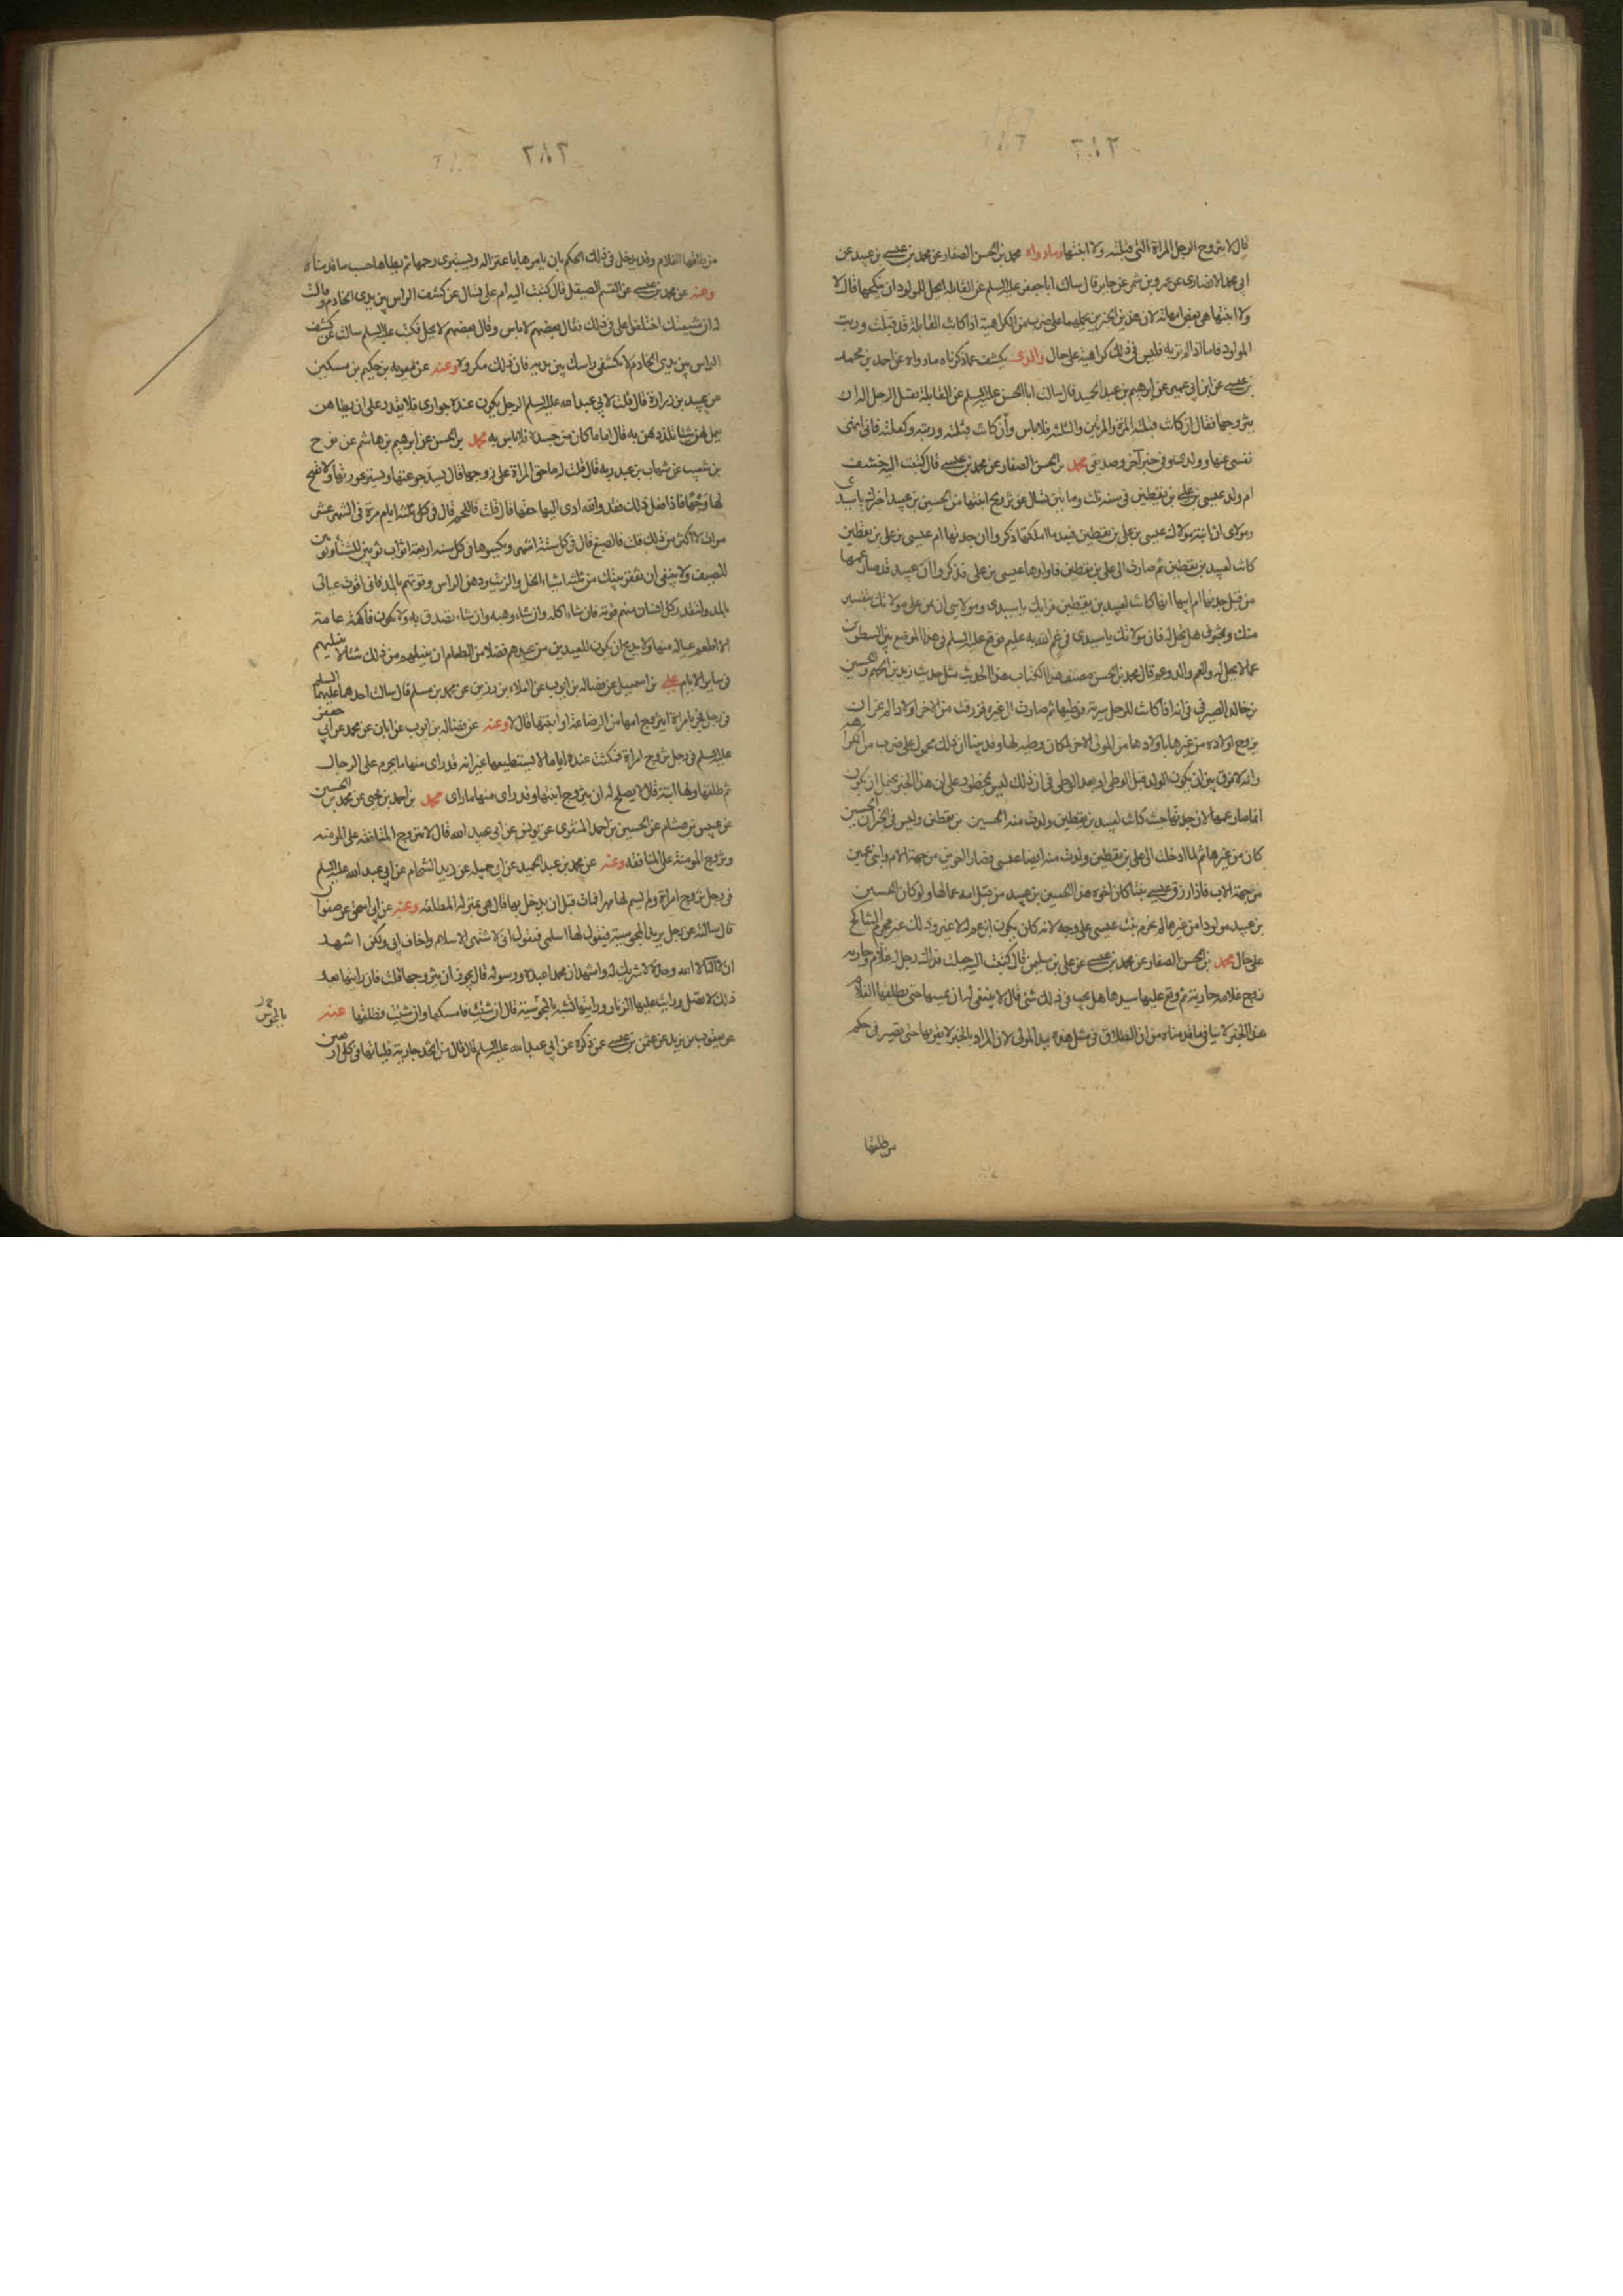 قال لا يتزوج الرجل المراة التى قبلته ولا ابنتها وما رواه محمد بن الحسن الصفار عن محمد بن عيسى بن عبيد عن
ابى محمد الانصارى عن عمرو بن شمر عن جابر قال سالت ابا جعفر عليه السلم عن القابلة ايحل للمولود ان ينكحها فقال لا
ولا ابنتها هى بعض امهاته لان هذين الخبرين نحملهما على ضرب من الكراهية اذا كانت القابلة قد قبلت وربت
المولود فاما اذا لم تربه فليس فى ذلك كراهية على حال والذى يكشف عما ذكرناه ما رواه عن احمد بن محمد
بن عيسى عن ابن ابى عمير عن ابرهيم بن عبد الحميد قال سالت ابا الحسن عليه السلم عن القابلة تقبل الرجل اله ان
يتزوجها فقال ان كانت قبلته المرة والمرتين والثلثة فلا باس وان كانت قبلته وربته وكفلته فانى انهى
نفسى عنها وولدى وفى خبر آخر وصديقى محمد بن الحسن الصفار عن محمد بن عيسى قال كتبت اليه خشف
ام ولد عيسى بن على بن يقطين فى سنه ثلث وماتين تسال عن تزويج ابنتها من الحسين بن عبيد اخبرك يا سيدى
ومولاى ان ابنة مولاك عيسى بن على بن يقطين فبعد ما املكتها ذكروا ان جدتها ام عيسى بن على بن يقطين
كانت لعبيد بن يقطين ثم صارت الى على بن يقطين فاولدها عيسى بن على فذكروا ان عبيد قد صار عمها
من قبل جدتها ام ابيها انها كانت لعبيد بن يقطين فرايك يا سيدى ومولاى ان تمن على مولاتك بتفسير
منك وتخبرنى هل تحل له فان مولاتك يا سيدى فى غم الله به عليم فوقع عليه السلم فى هذا الموضع بين السطرين
عما لا يحل له والعم والد وعم قال محمد بن الحسن مصنف هذا الكتاب هذا الحديث مثل حديث زيد بن الجهم والحسين
بن خالد الصيرفى فى انه اذا كانت للرجل سرية فوطيها ثم صارت الى غيره فرزقت من الاخر اولادا لم يجز ان
يزوج اولاده من غيرها باولادها من المولى الاخر لمكان وطيه لها وقد بينا ان ذلك محمول على ضرب من الكراهية
وانه لا فرق بين ان يكون الولد قبل الوطى او بعد الوطى فى ان ذلك ليس بمحظور على ان هذا الخبر يحتمل ان يكون
انما صار عمها لان جدتها حيث كانت لعبيد بن يقطين ولدت منه الحسين بن يقطين وليس فى الخبر ان الحسين
كان من غيرها ثم لما ادخلت الى على بن يقطين ولدت منه ايضا عيسى فصارا اخوين من جهة الام وابنى عمين
من جهة الاب فاذا رزق عيسى بنتا كان اخوه هذا الحسين بن عبيد من قبل امه عما لها ولو كان الحسين
بن عبيد مولودا من غيرها لم تحرم بنت عيسى على وجه لانه كان يكون ابن عم له لا غير وذلك غير محرم للتناكح
على حال محمد بن الحسن الصفار عن محمد بن عيسى عن على بن سليمن قال كتبت اليه جعلت فداك رجل له غلام وجاريه
زوج غلامه جاريته ثم وقع عليها سيدها هل يجب فى ذلك شئ قال لا ينبغى له ان يمسها حتى يطلقها الغلام
هذا الخبر لا ينافى ما قدمناه من ان الطلاق فى مثل هذه بيد المولى لان المراد بالخبر لا يقربها حتى تصير فى حكم
من طلقها
من طلقها الغلام وقد يدخل فى ذلك الحكم بان يامرها باعتزاله ويستبرى رحمها ثم يطاها حسب ما قدمناه
وعنه عن محمد بن عيسى عن القسم الصيقل قال كتبت اليه ام على تسال عن كشف الراس بين يدى الخادم وقالت
له ان شيعتك اختلفوا على فى ذلك فقال بعضهم لا باس وقال بعضهم لا يحل فكتب عليه السلم سالت عن كشف
الراس بين يدى الخادم لا تكشفى راسك بين يديه فان ذلك مكروه وعنه عن معويه بن حكيم بن مسكين
عن عبيد بن زرارة قال قلت لابى عبد الله عليه السلم الرجل يكون عنده جوارى فلا يقدر على ان يطاهن
يعمل لهن شيئا يلذذهن به قال اما ما كان من جسده فلا باس به محمد بن الحسن عن ابرهيم بن هاشم عن نوح
بن شعيب عن شهاب بن عبد ربه قال قلت له ما حق المراة على زوجها قال يسد جوعتها ويستر عورتها ولا يقبح
لها وجها فاذا فعل ذلك فقد والله ادى اليها حقها قال قلت فاللحم قال فى كل ثلثه ايام مرة فى الشهر عشر
مرات لا اكثر من ذلك قلت فالصبغ قال فى كل ستة اشهر ويكسوها فى كل سنه اربعة اثواب ثوبين للشتاء وثوبين
للصيف ولا ينبغى ان تقفر بيتك من ثلثه اشياء الخل والزيت ودهن الراس وقوتهم بالمد فانى اقوت عيالى
بالمد وليقدر كل انسان منهم قوته فان شاء اكله وان شاء وهبه وان شاء تصدق به ولا تكون فاكهة عامة
الا اطعم عياله منها ولا يدع ان يكون للعيدين من عيدهم فضلا من الطعام ان ينيلهم من ذلك شيئا لا ينيلهم
فى ساير الايام على بن اسمعيل عن فضاله بن ايوب عن العلاء بن رزين عن محمد بن مسلم قال سالت احدهما عليهما السلم
فى رجل فجر بامراة ايتزوج امها من الرضاعة او ابنتها قال لا وعنه عن فضاله بن ايوب عن ابان عن محمد عن ابى جعفر
عليه السلم فى رجل تزوج امراة فمكثت عنده اياما لا يستطيعها غير انه قد راى منها ما يحرم على الرجال
ثم طلقها ولها ابنة قال لا يصلح له ان يتزوج ابنتها وقد راى منها ما راى محمد بن احمد بن يحيى عن محمد بن الحسين
عن عبيس بن هشام عن الحسين بن احمد المنقرى عن يونس عن ابى عبد الله قال لا تتزوج المنافقه على المومنه
وتزوج المومنة على المنافقه وعنه عن محمد بن عبد الحميد عن ابى جميله عن زيد الشحام عن ابى عبد الله عليه السلم
فى رجل تزوج امراة ولم يسم لها مهرا فمات قبل ان يدخل بها قال هى بمنزله المطلقه وعنه عن ابى اسحق عن صفوان
قال سالته عن رجل يريد المجوسية فيقول لها اسلمى فتقول انى لاشتهى الاسلام واخاف ابى ولكنى اشهد
ان لا اله الا الله وحده لا شريك له واشهد ان محمدا عبده ورسوله قال يجوز ان يتزوجها قلت فان رايتها بعد
ذلك لا تصلى ورايت عليها الزنار ورايتها تشبه بالمجوسية قال ان شئت فامسكها وان شئت فطلقها عنه
عن يعقوب بن يزيد عن عثمن بن عيسى عن ذكره عن ابى عبد الله عليه السلم قال قال من اتخذ جارية فلياتها فى كل اربعين
بالمجوس